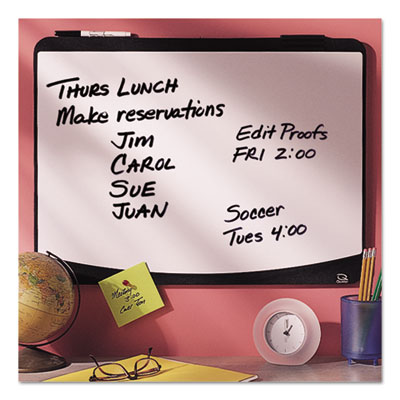 THURS LUNCH
Make reservations
JIM
CAROL
SUE
JUAN
Edit Proofs
FRI 2:00
Soccer
Tues 4:00